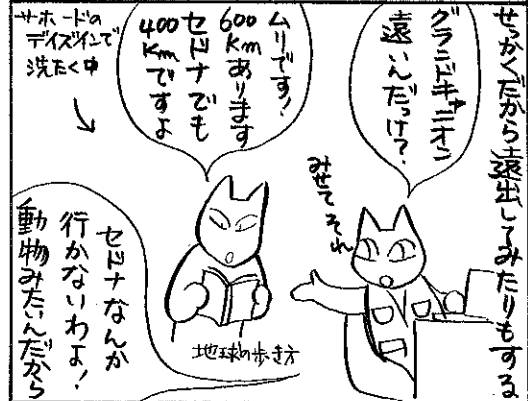 せっかくだから遠出してみたりもする
グランドキャニオン
遠いんだっけ?
みせて それ
ムリです!
600
Kmあります
セドナでも
400
Kmですよ
サードの
デイズインで
洗たく中
地球の歩き方
セドナなんか
行かないわよ!
動物みたいんだから